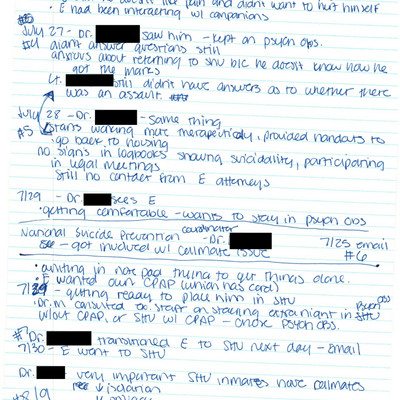 doesn't like pain and didn't want to hurt himself
• E had been interacting w/ companions
July 27 - Dr. saw him - kept on psych obs.
didnt answer questions still
anxious about returning to SHU b/c he doesn't know how he
got the marks
Lt. still didn't have answers as to whether there
was an assault.
July 28 - Dr. - same thing
#5 starts working more therapeutically, provided handouts to
go back to housing
no signs in logbooks showing suicidality, participating
in legal meetings
Still no contact from E attorneys
7/29 - Dr. sees E
• getting comfortable - wants to stay in psych obs
National Suicide Prevention coordinator - Dr. 7/25 email
- got involved w/ cellmate issue #6
• writing in note pad trying to get things done.
• E wanted own CPAP (which has card)
7/29 - getting ready to place him in SHU
• Dr. M consulted w/ staff on staying extra night in psych obs
w/out CPAP, or SHU w/ CPAP - chose psych obs.
#7 Dr. transitioned E to SHU next day - Email
7/30 - E went to SHU
Dr. very important SHU inmates have cellmates
↓ isolation